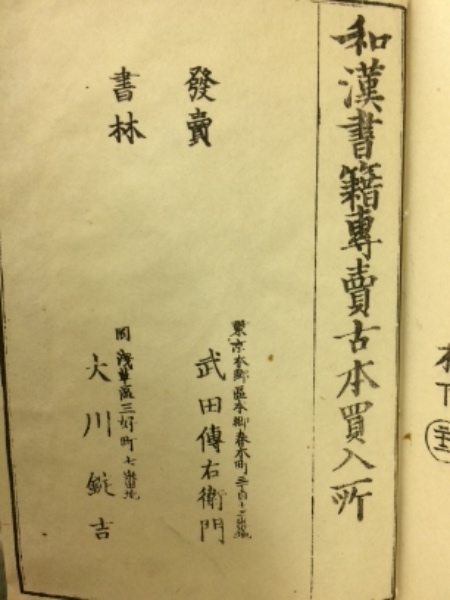 和漢書籍專賣古本買入所
發賣
書林
東京本郷區本郷春木町三丁目
武田傳右衛門
同淺草區三好町七番地
大川錠吉